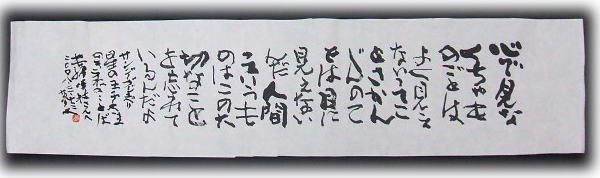 心で見な
くちゃも
のごとは
よく見え
ないってこ
とさかん
じんのこ
とは目に
見えない
んだ 人間
ていうも
のはこのた
切なこと
を忘れて
いるんだよ
サンテグジュペリ
星の王子さま